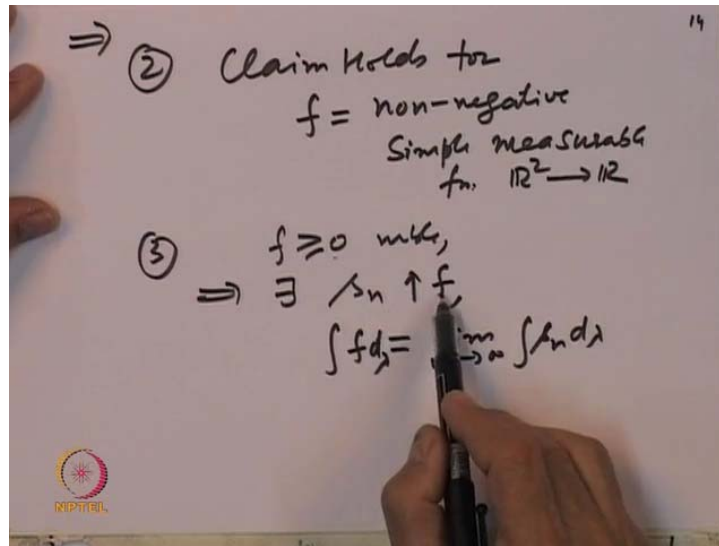 14
⇒ ② Claim Holds for
f = non-negative
Simple measurable
fn. ℝ² → ℝ
③ f ≥ 0 mble,
⇒ ∃ sₙ ↑ f,
∫ f dλ = lim n→∞ ∫ sₙ dλ
NPTEL